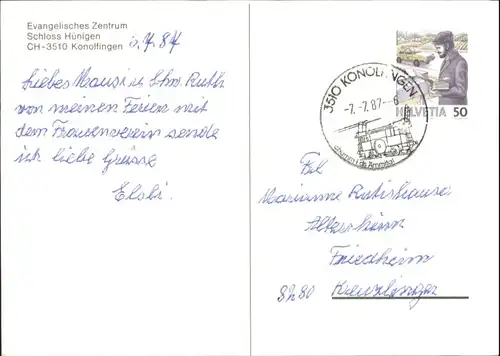 Evangelisches Zentrum
Schloss Hünigen
CH-3510 Konolfingen
5.7.87
Liebes Mausi u. Schw. Ruth
von meinen Ferien mit
dem Frauenverein sende
ich liebe Grüsse
3510 KONOLFINGEN
-7.-7.87.-6
HELVETIA 50
Frl.
Marianne Rutishauser
Altersheim
Friedheim
8280 Kreuzlingen